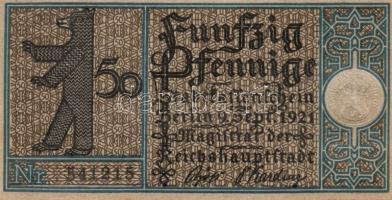 50
Funfzig
Pfennige
Stadtkassenschein
Berlin 9. Sept. 1921
Magistrat der
Reichshauptstadt
Nr. 541215